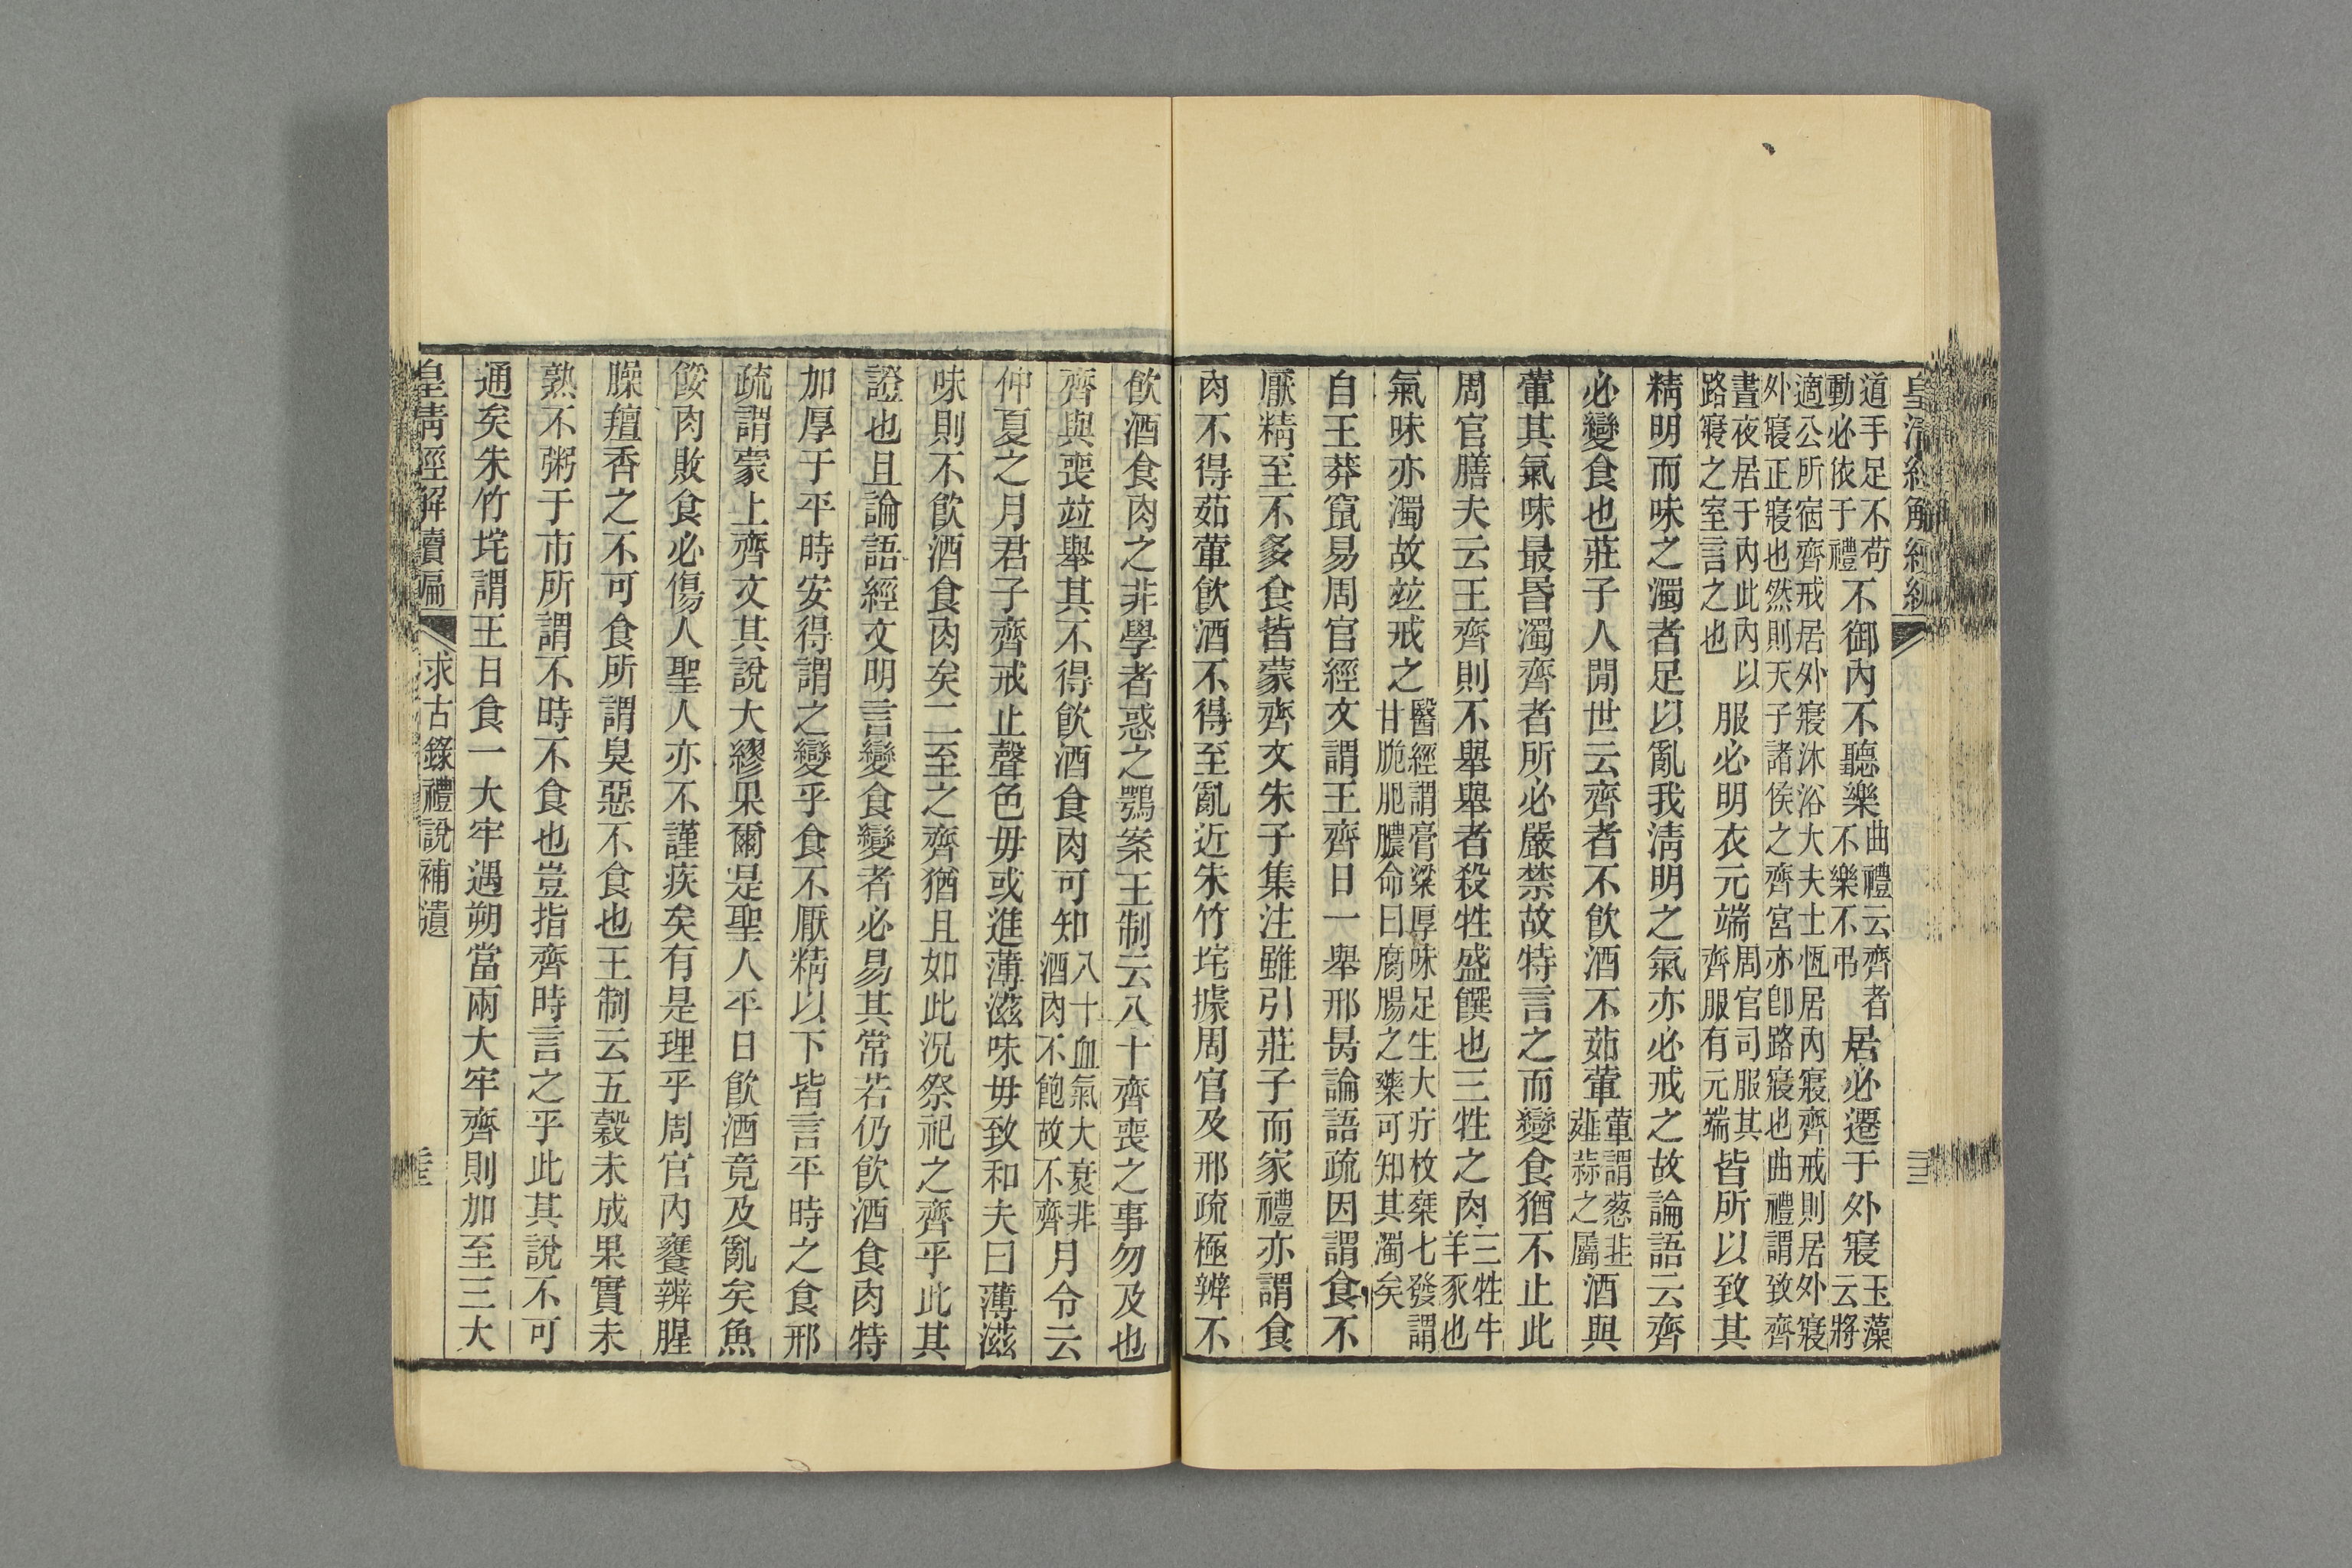 道手足不苟動必依于禮不御內不聽樂曲禮云齊者不樂不弔居必遷于外寢玉藻云將
適公所宿齊戒居外寢沐浴大夫士恆居內寢齊戒則居外寢外寢正寢也然則天子諸侯之齊宮亦卽路寢也曲禮謂致齊
晝夜居于內此內以路寢之室言之也服必明衣元端周官司服其齊服有元端皆所以致其
精明而味之濁者足以亂我淸明之氣亦必戒之故論語云齊
必變食也莊子人閒世云齊者不飮酒不茹葷葷謂蔥韭薤蒜之屬酒與
葷其氣味最昏濁齊者所必嚴禁故特言之而變食猶不止此
周官膳夫云王齊則不舉舉者殺牲盛饌也三牲之肉三牲牛羊豕也
氣味亦濁故竝戒之醫經謂膏粱厚味足生大疔枚椉七發謂甘脆肥膿命曰腐腸之藥可知其濁矣
自王莽竄易周官經文謂王齊日一舉邢昺論語疏因謂食不
厭精至不多食皆蒙齊文朱子集注雖引莊子而家禮亦謂食
肉不得茹葷飮酒不得至亂近朱竹垞據周官及邢疏極辨不
飮酒食肉之非學者惑之鶚案王制云八十齊喪之事勿及也
齊與喪竝舉其不得飮酒食肉可知八十血氣大衰非酒肉不飽故不齊月令云
仲夏之月君子齊戒止聲色毋或進薄滋味毋致和夫曰薄滋
味則不飮酒食肉矣二至之齊猶且如此況祭祀之齊乎此其
證也且論語經文明言變食變者必易其常若仍飮酒食肉特
加厚于平時安得謂之變乎食不厭精以下皆言平時之食邢
疏謂蒙上齊文其說大繆果爾是聖人平日飮酒竟及亂矣魚
餒肉敗食必傷人聖人亦不謹疾矣有是理乎周官內饔辨腥
臊羶香之不可食所謂臭惡不食也王制云五穀未成果實未
熟不粥于市所謂不時不食也豈指齊時言之乎此其說不可
通矣朱竹垞謂王日食一大牢遇朔當兩大牢齊則加至三大
皇淸經解續編 求古錄禮說補遺